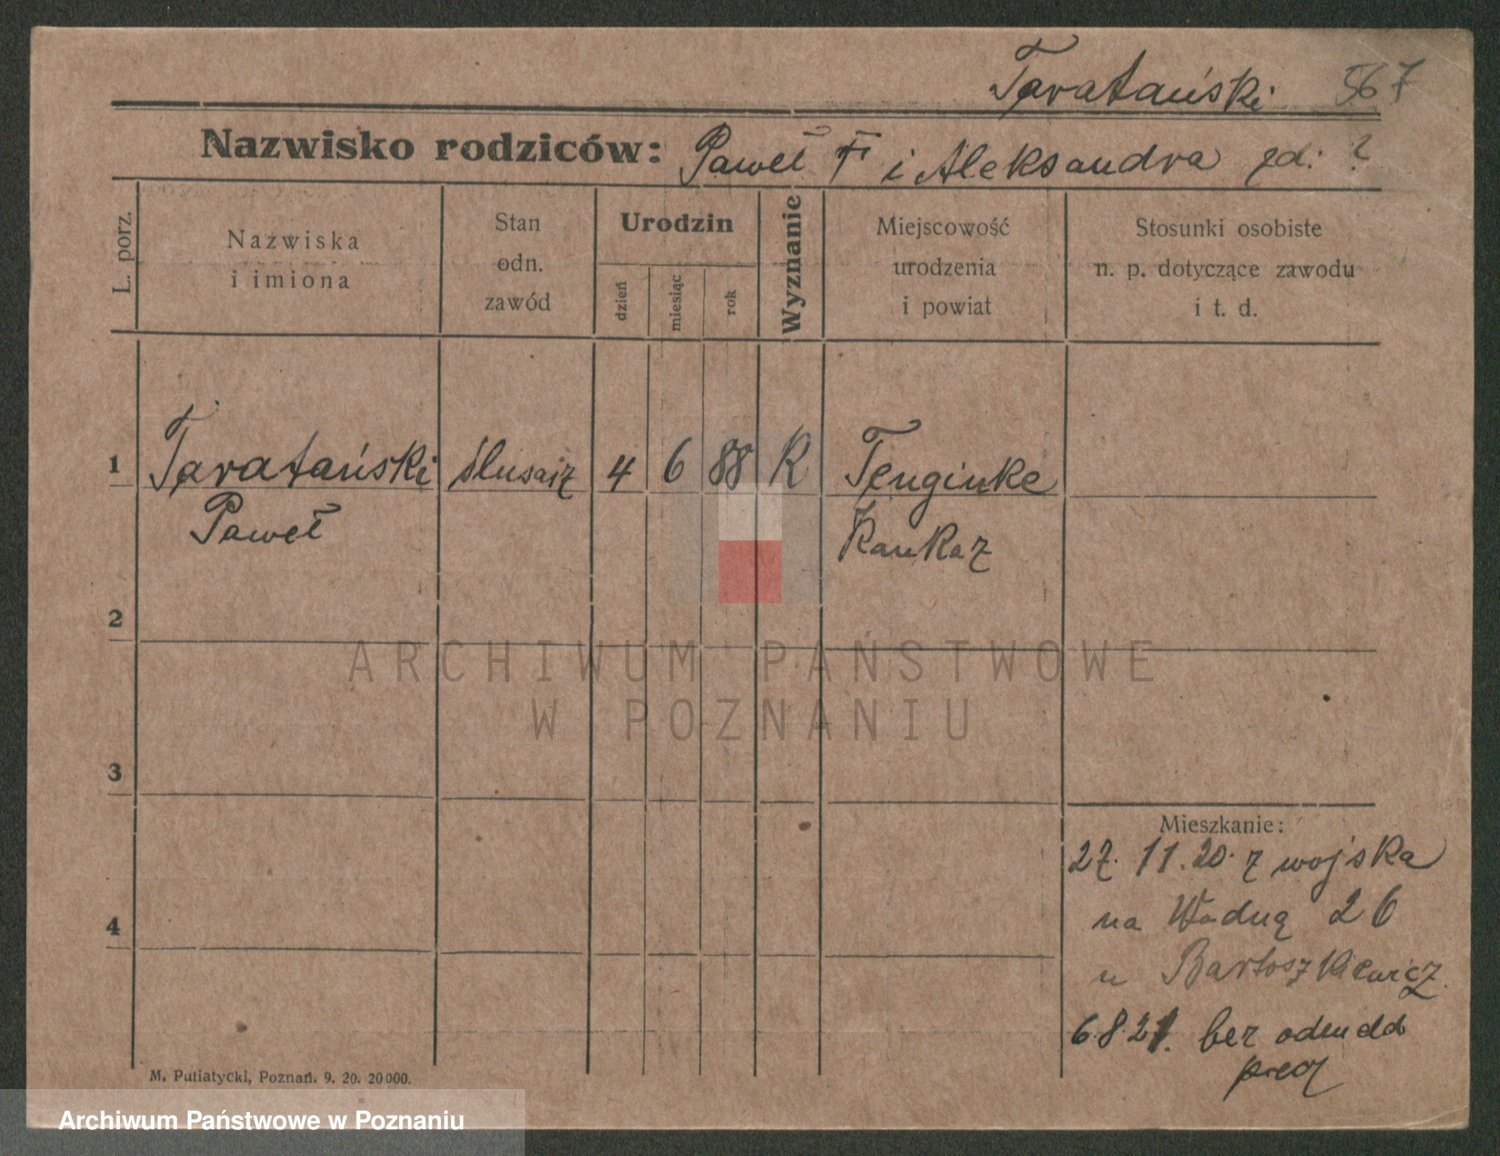 Taratański 567
Nazwisko rodziców: Paweł F i Aleksandra zd: ?
L. porz.
Nazwiska
i imiona
Stan
odn.
zawód
Urodzin
dzień
miesiąc
rok
Wyznanie
Miejscowość
urodzenia
i powiat
Stosunki osobiste
n. p. dotyczące zawodu
i t. d.
1 Taratański ślusarz 4 6 88 R Tenginke
Paweł Kaukaz
2
ARCHIWUM PAŃSTWOWE
W POZNANIU
3
Mieszkanie:
27. 11. 20. z wojska
na Wodną 26
u Bartoszkiewicz
4
6.8.21. bez
precz
M. Putiatycki, Poznań. 9. 20. 20000.
Archiwum Państwowe w Poznaniu